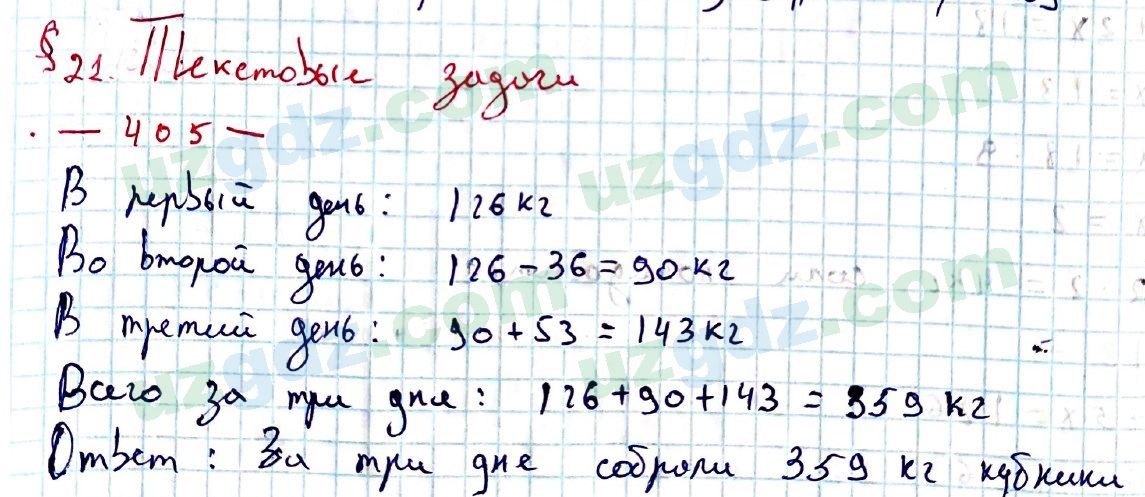 § 21. Текстовые задачи
. — 405 —
В первый день: 126 кг
Во второй день: 126 - 36 = 90 кг
В третий день: 90 + 53 = 143 кг
Всего за три дня: 126 + 90 + 143 = 359 кг
Ответ: За три дне собрали 359 кг клубники
uzgdz.com uzgdz.com
uzgdz.com uzgdz.com